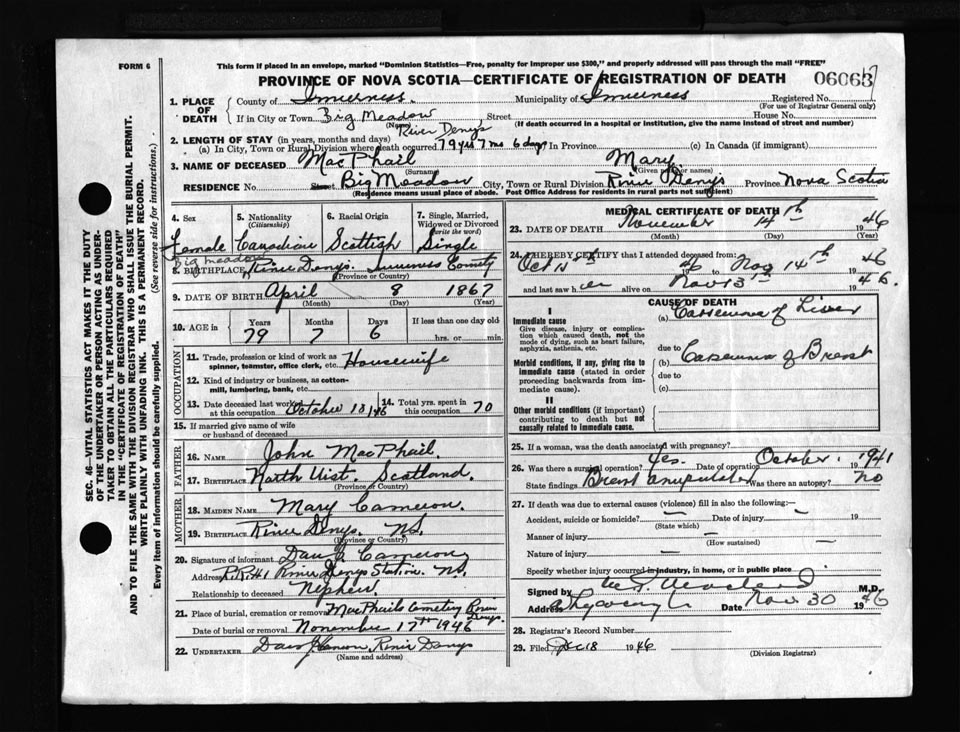 FORM 6
This form if placed in an envelope, marked "Dominion Statistics—Free, penalty for improper use $300," and properly addressed will pass through the mail "FREE"
PROVINCE OF NOVA SCOTIA—CERTIFICATE OF REGISTRATION OF DEATH
06063
1. PLACE OF DEATH { County of Inverness. Municipality of Inverness Registered No.
(For use of Registrar General only)
If in City or Town Big Meadow Street House No.
(Name) River Denys (If death occurred in a hospital or institution, give the name instead of street and number)
2. LENGTH OF STAY (in years, months and days)
(a) In City, Town or Rural Division where death occurred 79 yrs 7 mo 6 days In Province (c) In Canada (if immigrant)
3. NAME OF DECEASED MacPhail Mary
(Surname) (Given name or names)
RESIDENCE No. Street Big Meadow City, Town or Rural Division River Denys Province Nova Scotia
(Residence means usual place of abode. Post Office Address for residents in rural parts not sufficient)
4. Sex 5. Nationality 6. Racial Origin 7. Single, Married,
(Citizenship) Widowed or Divorced
(write the word)
Female Canadian Scottish Single
Big Meadow
8. BIRTHPLACE River Denys. Inverness County
(Province or Country)
9. DATE OF BIRTH April 8 1867
(Month) (Day) (Year)
10. AGE in Years Months Days If less than one day old
79 7 6 hrs. or min.
OCCUPATION
11. Trade, profession or kind of work as Housewife
spinner, teamster, office clerk, etc.
12. Kind of industry or business, as cotton-
mill, lumbering, bank, etc.
13. Date deceased last worked 14. Total yrs. spent in
at this occupation October 18/46 this occupation 70
15. If married give name of wife
or husband of deceased
FATHER
16. NAME John MacPhail.
17. BIRTHPLACE North Uist. Scotland.
(Province or Country)
MOTHER
18. MAIDEN NAME Mary Cameron
19. BIRTHPLACE River Denys. N.S.
(Province or Country)
20. Signature of informant Dan J. Cameron
Address R.R.#1 River Denys Station. N.S.
Relationship to deceased Nephew.
21. Place of burial, cremation or removal MacPhails Cemetery River Denys.
Date of burial or removal November 17th 1946
22. UNDERTAKER River Denys
(Name and address)
MEDICAL CERTIFICATE OF DEATH
23. DATE OF DEATH November 14th 1946
(Month) (Day) (Year)
24. I HEREBY CERTIFY that I attended deceased from:
Oct 15th 46 to Nov 14th 1946
and last saw h er alive on Nov 13th 1946.
CAUSE OF DEATH
I
Immediate cause (a) Carcinoma of Liver
Give disease, injury or complication which caused death, not the mode of dying, such as heart failure, asphyxia, asthenia, etc.
due to
Morbid conditions, if any, giving rise to immediate cause (stated in order proceeding backwards from immediate cause). (b) Carcinoma of Breast
due to
(c)
II
Other morbid conditions (if important) contributing to death but not causally related to immediate cause.
25. If a woman, was the death associated with pregnancy?
26. Was there a surgical operation? Yes. Date of operation October. 1941
State findings Breast amputated Was there an autopsy? No
27. If death was due to external causes (violence) fill in also the following:—
Accident, suicide or homicide? — Date of injury — 19
(State which)
Manner of injury —
(How sustained)
Nature of injury —
Specify whether injury occurred in industry, in home, or in public place
Signed by M.D.
Address Date Nov 30 1946
28. Registrar's Record Number
29. Filed Dec 18 1946
(Division Registrar)
SEC. 46—VITAL STATISTICS ACT MAKES IT THE DUTY
OF THE UNDERTAKER OR PERSON ACTING AS UNDER-
TAKER TO OBTAIN ALL THE PARTICULARS REQUIRED
IN THE "CERTIFICATE OF REGISTRATION OF DEATH"
AND TO FILE THE SAME WITH THE DIVISION REGISTRAR WHO SHALL ISSUE THE BURIAL PERMIT.
WRITE PLAINLY WITH UNFADING INK. THIS IS A PERMANENT RECORD.
Every item of information should be carefully supplied. (See reverse side for instructions.)